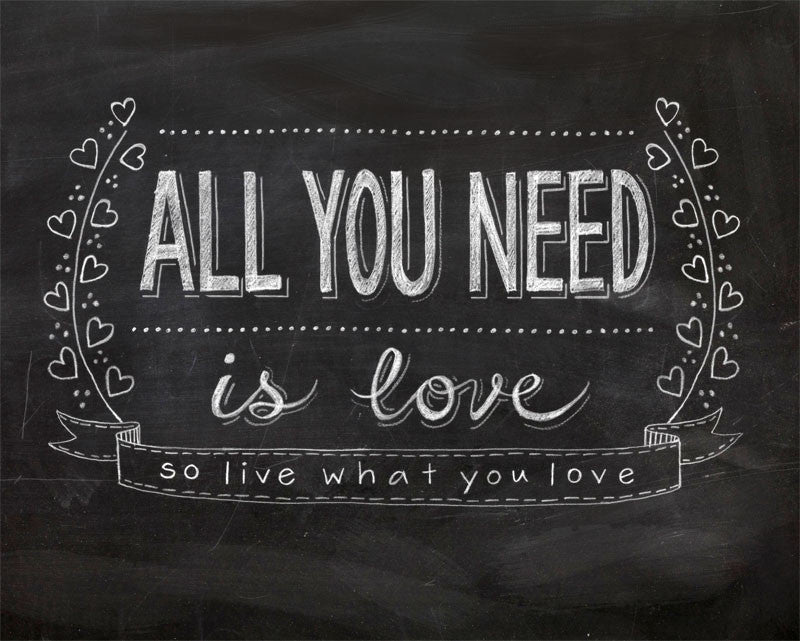 ALL YOU NEED
is love
so live what you love